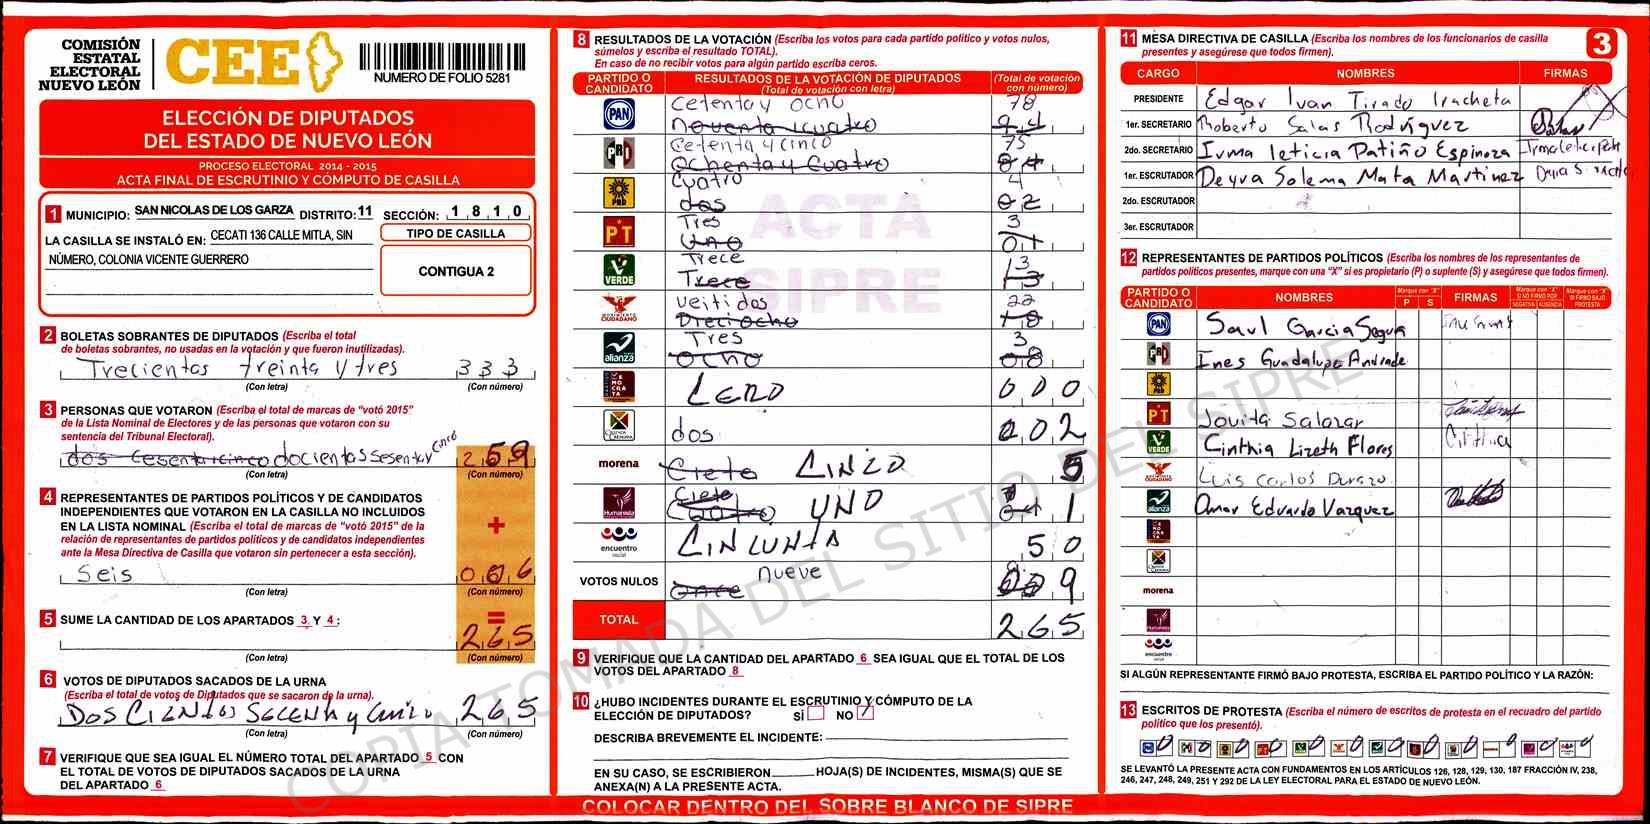 COMISIÓN
ESTATAL
ELECTORAL
NUEVO LEÓN
CEE
NUMERO DE FOLIO 5281
ELECCIÓN DE DIPUTADOS
DEL ESTADO DE NUEVO LEÓN
PROCESO ELECTORAL 2014 - 2015
ACTA FINAL DE ESCRUTINIO Y CÓMPUTO DE CASILLA
1 MUNICIPIO: SAN NICOLAS DE LOS GARZA DISTRITO: 11 SECCIÓN: 1 8 1 0
LA CASILLA SE INSTALÓ EN: CECATI 136 CALLE MITLA, SIN
NÚMERO, COLONIA VICENTE GUERRERO
TIPO DE CASILLA
CONTIGUA 2
2 BOLETAS SOBRANTES DE DIPUTADOS (Escriba el total
de boletas sobrantes, no usadas en la votación y que fueron inutilizadas).
Trecientos treinta y tres 333
(Con letra) (Con número)
3 PERSONAS QUE VOTARON (Escriba el total de marcas de “votó 2015”
de la Lista Nominal de Electores y de las personas que votaron con su
sentencia del Tribunal Electoral).
dos Cesentaicinco docientos Sesentay Cinco 259
(Con letra) (Con número)
4 REPRESENTANTES DE PARTIDOS POLÍTICOS Y DE CANDIDATOS
INDEPENDIENTES QUE VOTARON EN LA CASILLA NO INCLUIDOS
EN LA LISTA NOMINAL (Escriba el total de marcas de “votó 2015” de la
relación de representantes de partidos políticos y de candidatos independientes
ante la Mesa Directiva de Casilla que votaron sin pertenecer a esta sección).
+
Seis 006
(Con letra) (Con número)
5 SUME LA CANTIDAD DE LOS APARTADOS 3 Y 4:
=
265
(Con letra) (Con número)
6 VOTOS DE DIPUTADOS SACADOS DE LA URNA
(Escriba el total de votos de Diputados que se sacaron de la urna).
DOS CIENTOS SECENTA y CINCO 265
(Con letra) (Con número)
7 VERIFIQUE QUE SEA IGUAL EL NÚMERO TOTAL DEL APARTADO 5 CON
EL TOTAL DE VOTOS DE DIPUTADOS SACADOS DE LA URNA
DEL APARTADO 6
8 RESULTADOS DE LA VOTACIÓN (Escriba los votos para cada partido político y votos nulos,
súmelos y escriba el resultado TOTAL).
En caso de no recibir votos para algún partido escriba ceros.
PARTIDO O CANDIDATO
RESULTADOS DE LA VOTACIÓN DE DIPUTADOS
(Total de votación con letra)
(Total de votación con número)
PAN Cetenta y ocho 78
noventa icuatro 94
PRI Cetenta y cinco 75
Ochenta y Cuatro 84
PRD Cuatro 4
dos 02
PT Tres 3
Uno 01
VERDE Trece 13
Trece 13
MOVIMIENTO CIUDADANO veitidos 22
Dieciocho 18
alianza Tres 3
Ocho 08
CERO 000
dos 002
morena Ciete CINCO 5
Humanista Ciete Cuatro UNO 1
encuentro social CINCUNTA 50
VOTOS NULOS once nueve 9
TOTAL 265
9 VERIFIQUE QUE LA CANTIDAD DEL APARTADO 6 SEA IGUAL QUE EL TOTAL DE LOS
VOTOS DEL APARTADO 8
10 ¿HUBO INCIDENTES DURANTE EL ESCRUTINIO Y CÓMPUTO DE LA
ELECCIÓN DE DIPUTADOS? SÍ NO /
DESCRIBA BREVEMENTE EL INCIDENTE:
EN SU CASO, SE ESCRIBIERON HOJA(S) DE INCIDENTES, MISMA(S) QUE SE
ANEXA(N) A LA PRESENTE ACTA.
COLOCAR DENTRO DEL SOBRE BLANCO DE SIPRE
ACTA
SIPRE
COPIA TOMADA DEL SITIO DEL SIPRE
11 MESA DIRECTIVA DE CASILLA (Escriba los nombres de los funcionarios de casilla
presentes y asegúrese que todos firmen).
3
CARGO NOMBRES FIRMAS
PRESIDENTE Edgar Ivan Tirado Iracheta
1er. SECRETARIO Roberto Salas Rodríguez
2do. SECRETARIO Irma leticia Patiño Espinoza
1er. ESCRUTADOR Deyra Solema Mata Martinez
2do. ESCRUTADOR
3er. ESCRUTADOR
12 REPRESENTANTES DE PARTIDOS POLÍTICOS (Escriba los nombres de los representantes de
partidos políticos presentes, marque con una “X” si es propietario (P) o suplente (S) y asegúrese que todos firmen).
PARTIDO O CANDIDATO
NOMBRES
Marque con "X"
P S
FIRMAS
Marque con "X" SI NO FIRMÓ POR
NEGATIVA AUSENCIA
Marque con "X" SI FIRMÓ BAJO PROTESTA
PAN Saul Garcia Segura
PRI Ines Guadalupe Andrade
PRD
PT Jovita Salazar
VERDE Cinthia Lizeth Flores Cinthia
MOVIMIENTO CIUDADANO Luis Carlos Durazo
alianza Omar Eduardo Vazquez
morena
Humanista
encuentro social
SI ALGÚN REPRESENTANTE FIRMÓ BAJO PROTESTA, ESCRIBA EL PARTIDO POLÍTICO Y LA RAZÓN:
13 ESCRITOS DE PROTESTA (Escriba el número de escritos de protesta en el recuadro del partido
político que los presentó).
0 0 0 0 0 0 0 0 0 0 0 0
SE LEVANTÓ LA PRESENTE ACTA CON FUNDAMENTOS EN LOS ARTÍCULOS 126, 128, 129, 130, 187 FRACCIÓN IV, 238,
246, 247, 248, 249, 251 Y 292 DE LA LEY ELECTORAL PARA EL ESTADO DE NUEVO LEÓN.